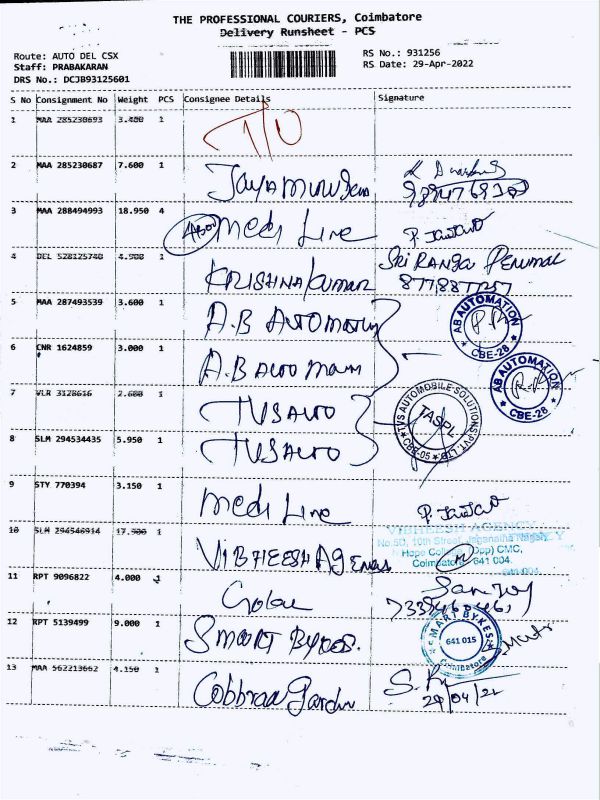 THE PROFESSIONAL COURIERS, Coimbatore
Delivery Runsheet - PCS
Route: AUTO DEL CSX
Staff: PRABAKARAN
DRS No.: DCJB93125601
RS No.: 931256
RS Date: 29-Apr-2022
S No Consignment No Weight PCS Consignee Details Signature
1 MAA 285230693 3.400 1 T/O
2 MAA 285230687 7.600 1
3 MAA 288494993 18.950 4 Medi Line
4 DEL 528125740 4.900 1 Krishna Kumar Sri Ranga Perumal
5 MAA 287493539 3.600 1 A.B Automation
AB AUTOMATION
CBE-28
6 CNR 1624859 3.000 1 A.B Automation
AB AUTOMATION
CBE-28
7 VLR 3128616 2.600 1 TVS AUTO
TVS AUTOMOBILE SOLUTIONS PVT. LTD.
TASPL
CBE-05
8 SLM 294534435 5.950 1 TVS AUTO
9 STY 770394 3.150 1 Medi Line
10 SLM 294546914 17.900 1 VIBHEESH Agencies
VIBHEESH AGENCY
No.5D, 10th Street, Jaganatha Nagar,
Hope College (Opp) CMC,
Coimbatore 641 004.
11 RPT 9096822 4.000 1
12 RPT 5139499 9.000 1 SMART BYKES.
SMART BYKES
641 015
Coimbatore
13 MAA 562213662 4.150 1
29/04/22